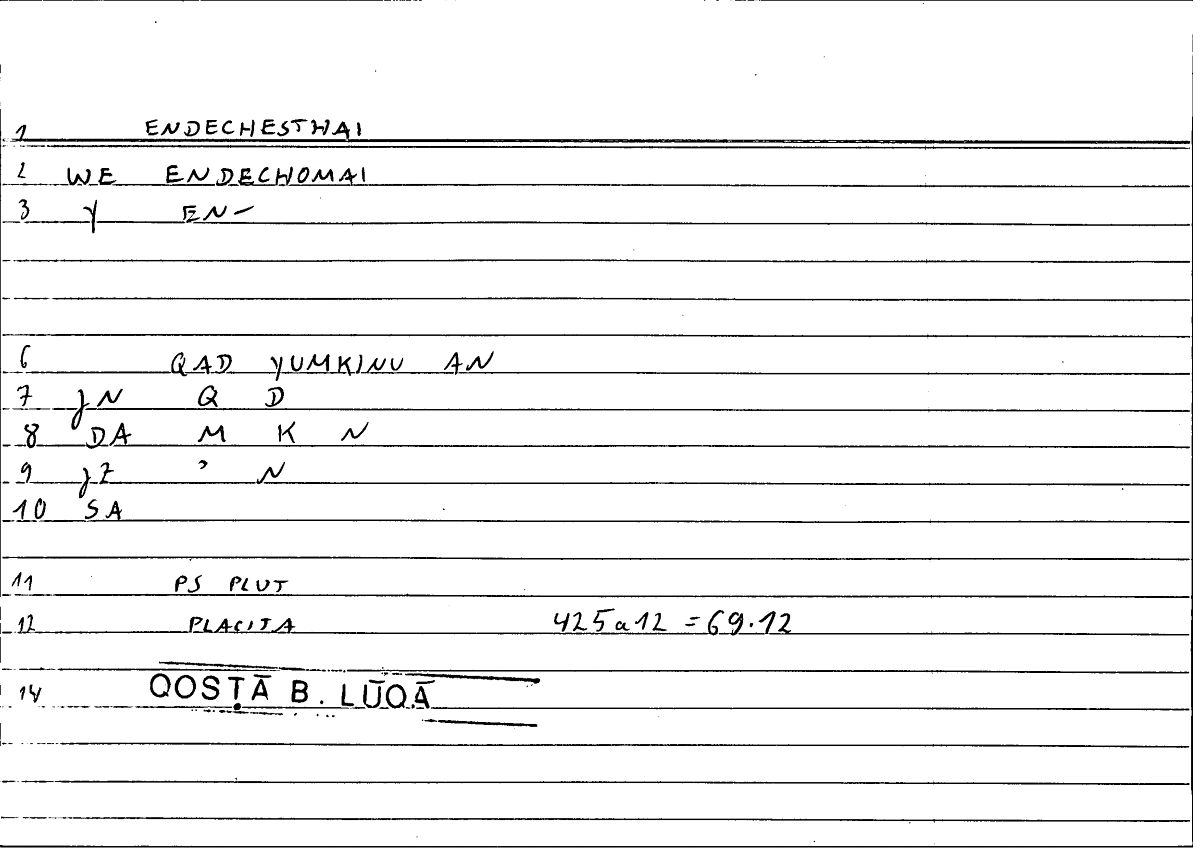 1 ENDECHESTHAI
2 WE ENDECHOMAI
3 Y EN-
6 QAD YUMKINU AN
7 JN Q D
8 DA M K N
9 JZ ' N
10 SA
11 PS PLUT
12 PLACITA 425a12 = 69.12
14 QOSṬĀ B. LŪQĀ